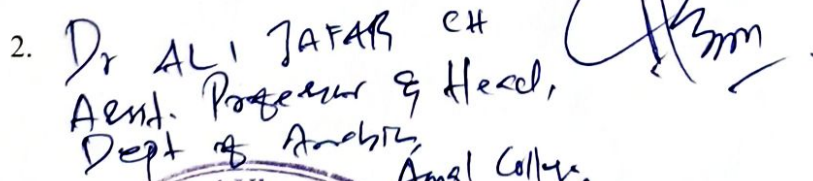 2. Dr ALI JAFAR CH
Asst. Professor & Head,
Dept of Arabic
Amal College,